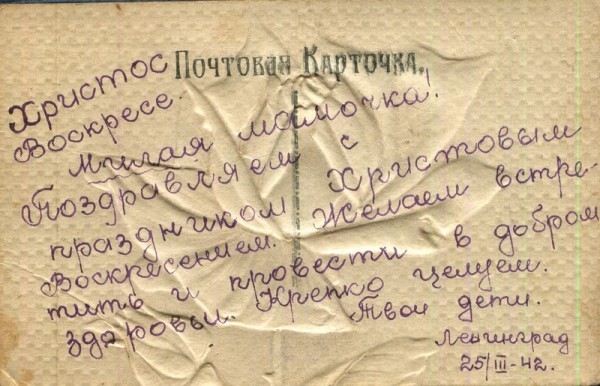 Почтовая Карточка.
Христос
Воскресе.
Милая мамочка!
Поздравляем с
праздником Христовым
Воскресением. Желаем встре-
тить и провести в добром
здаровьи. Крепко целуем.
Твои дети.
Ленинград
25/III-42.